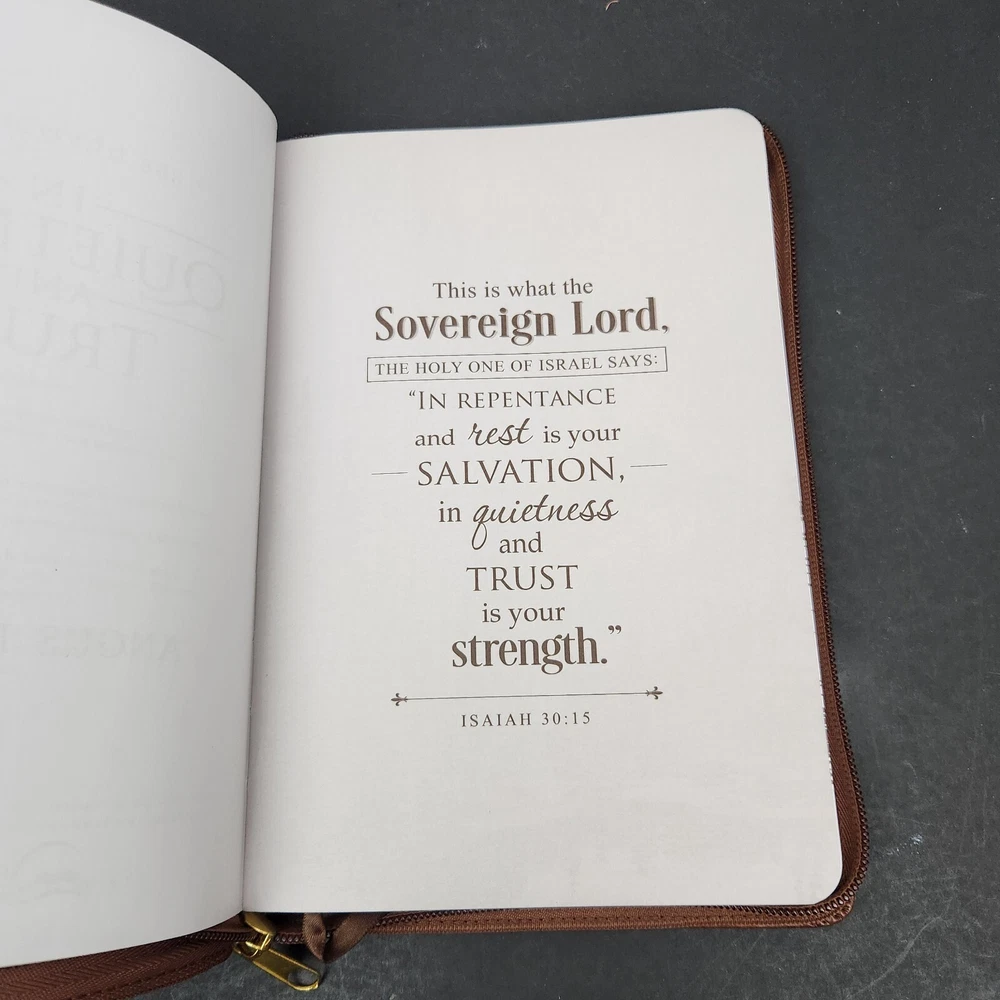 This is what the
Sovereign Lord,
THE HOLY ONE OF ISRAEL SAYS:
“IN REPENTANCE
and rest is your
SALVATION,
in quietness
and
TRUST
is your
strength.”
ISAIAH 30:15